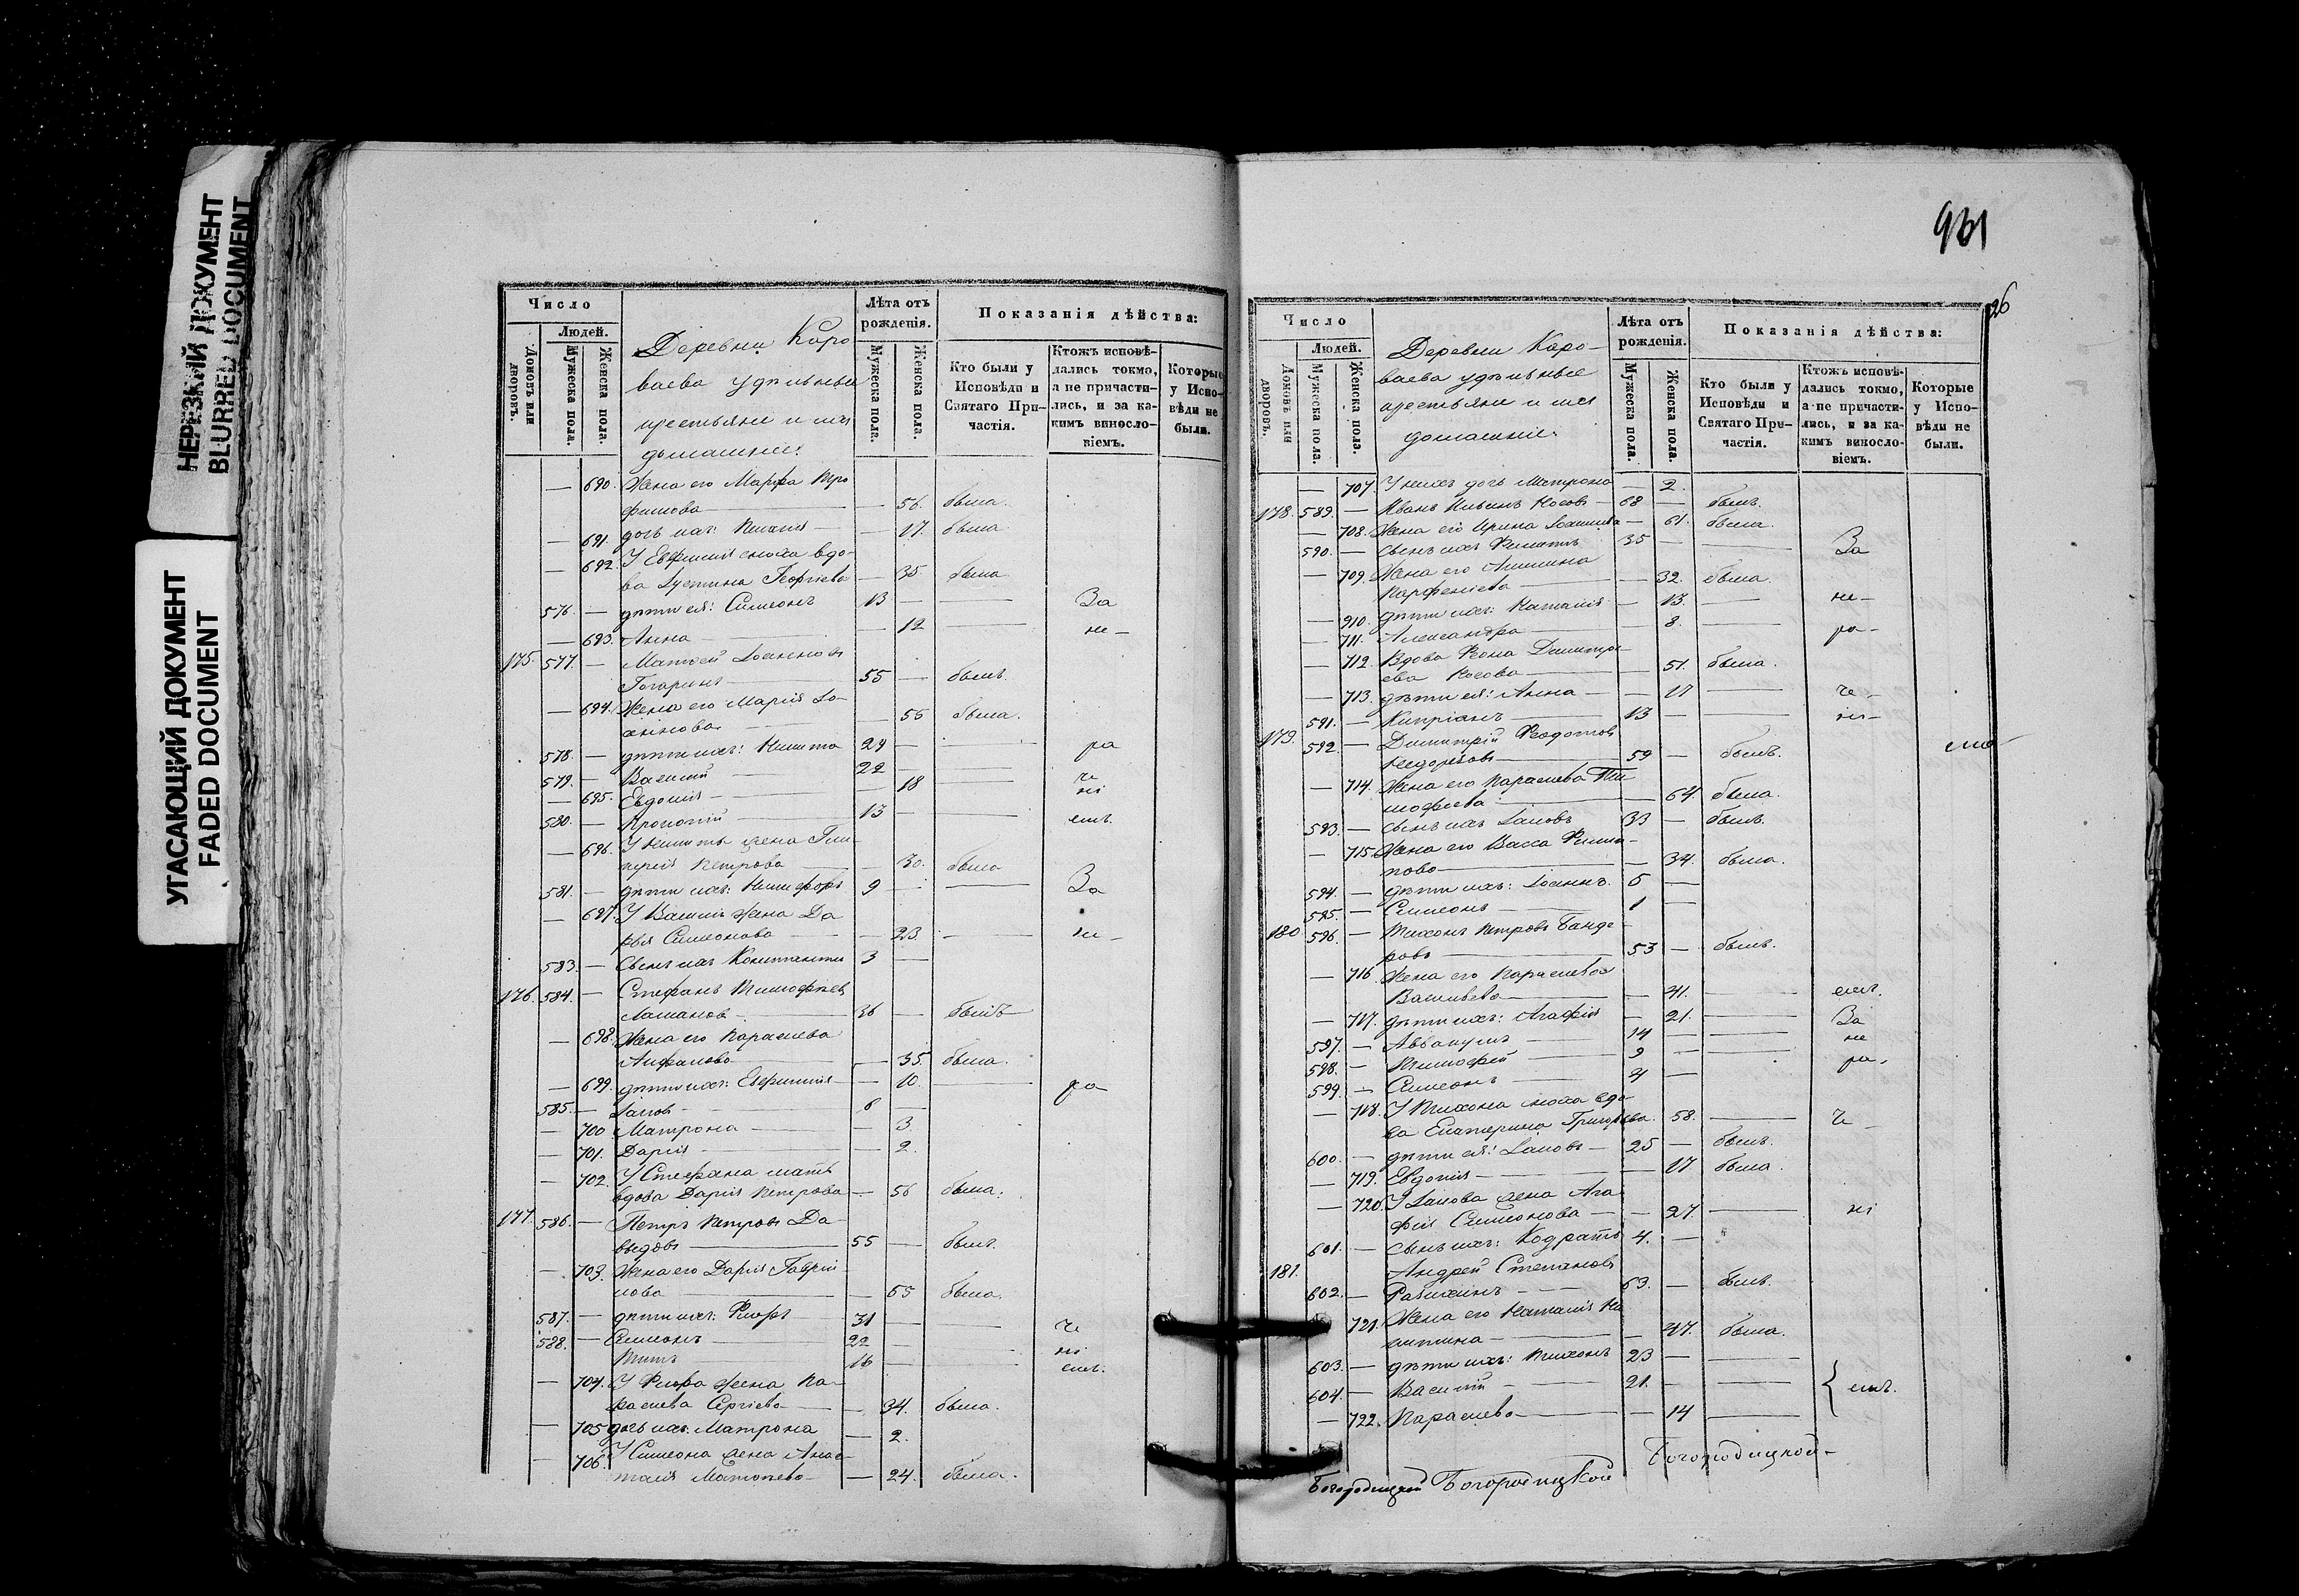 НЕРЕЗКИЙ ДОКУМЕНТ
BLURRED DOCUMENT
УГАСАЮЩИЙ ДОКУМЕНТ
FADED DOCUMENT
Число
Людей.
Домовъ или дворовъ.
Мужеска пола.
Женска пола.
Деревни Каро
ваева удѣльные
крестьяне и ихъ
домашніе.
Лѣта отъ рожденія.
Мужеска пола.
Женска пола.
Показанія дѣйства:
Кто были у Исповѣди и Святаго При-частія.
Ктожъ исповѣ-дались токмо, а не причасти-лись, и за ка-кимъ винословіемъ.
Которые у Испо-вѣди не были.
— 690. Жена его Марфа Тро
фимова — — 56. была.
— 691. дочь ихъ: — 17. была
— 692. У Евфимія сноха вдо-
ва Іустина Георгіева — 35. была
576. — дѣти ея: Симеонъ 13 — За
— 693. Анна — 12 не—
175. 577. — Матвей Іоанновъ
Гагаринъ 55 — былъ.
— 694. Жена его Марія Іо-
аннова — 55 была.
578. — дѣти ихъ: Никита 24 — ра
579. — Василій 22 — че
— 695. Евдокія — 18 ні
580. — Прокопій 13 — емъ.
— 696. У Никиты жена Гли-
керія Петрова — 30. была
581. — дѣти ихъ: Никифоръ 9 — За
— 697. У Василія жена Да
рья Симеонова — 23. не—
583. — Сынъ ихъ Константи 3 —
176. 584. — Стефанъ Тимофеев
Лашанов 36 — былъ
— 698. Жена его Параскева
— 35. была.
— 699. дѣти ихъ: Евфимія — 10. ра
585. — Іаковъ 6 —
— 700 Матрона — 3.
— 701. Дарія — 2.
— 702. У Стефана мать
вдова Дарія Петрова — 56 была.
177. 586. — Петръ Петровъ Да-
выдовъ 55 — былъ.
— 703. Жена его Дарія Гаврии
лова — 55 была.
587. — дѣти ихъ: Флоръ 31 — че
588. — Симеонъ 22 — ні
Титъ 16 — емъ.
— 704. У Флора жена Па-
раскева Сергіева — 34. была.
— 705 дочь ихъ: Матрона — 2.
— 706. У Симеона жена Анас-
тасія Матвеева — 24. была.
931
26
Число
Людей.
Домовъ или дворовъ.
Мужеска пола.
Женска пола.
Деревни Каро-
ваева удѣльные
крестьяне и ихъ
домашніе.
Лѣта отъ рожденія.
Мужеска пола.
Женска пола.
Показанія дѣйства:
Кто были у Исповѣди и Святаго При-частія.
Ктожъ исповѣ-дались токмо, а не причасти-лись, и за ка-кимъ винословіемъ.
Которые у Испо-вѣди не были.
— 707. У нихъ дочь Матрона — 2.
178. 589. — Иванъ Ильинъ Носовъ 68 — былъ.
— 708. Жена его Ирина Іоаннова — 61. была.
590. — Сынъ ихъ Филиппъ 35 — За
— 709. Жена его Акилина
Парфеніева — 32. была.
— 910. дѣти ихъ: Наталія — 13. не—
— 711. Александра — 8. ра—
— 712. Вдова Дмитрі-
ева Носова — 51. была.
— 713. дѣти ея: Анна — 17 че—
591. — Кипріанъ 13 — ні—
179. 592. — Димитрій Федотов
59 — былъ. емъ
— 714. Жена его Параскева Ти-
мофеева — 64. была.
593. — Сынъ ихъ Іаковъ 33 — былъ.
— 715. Жена его Васса Филип-
пова — 34. была.
594. — дѣти ихъ: Іоаннъ. 5 —
595. — Симеонъ 1 —
180 596. — Тихонъ Петровъ Банде-
ровъ 53 — былъ.
— 716 Жена его Параскева
Васильева — 41. емъ.
— 717. дѣти ихъ: Агафія — 21. За
597. — Аввакумъ 14 — не
598. — Тимофей 9 — ра—
599. — Симеонъ 4 —
— 718. У Тихона сноха вдо
ва Екатерина Григорьева. 58. че
600. — дѣти ея: Іаковъ 25 — былъ.
— 719. Евдокія — 17 была.
— 720. У Іакова жена Ага
фія Симеонова — 27. ні
601. — сынъ ихъ: Кодратъ 4. —
181. Андрей Степановъ
602. — 63. — былъ.
— 721. Жена его Наталія Ни
китина — 47. была.
603. — дѣти ихъ: Тихонъ 23 —
604. — Василій 21. — емъ.
— 722. Параскева — 14
Богородицкой—
Богородицкой Богородицкой